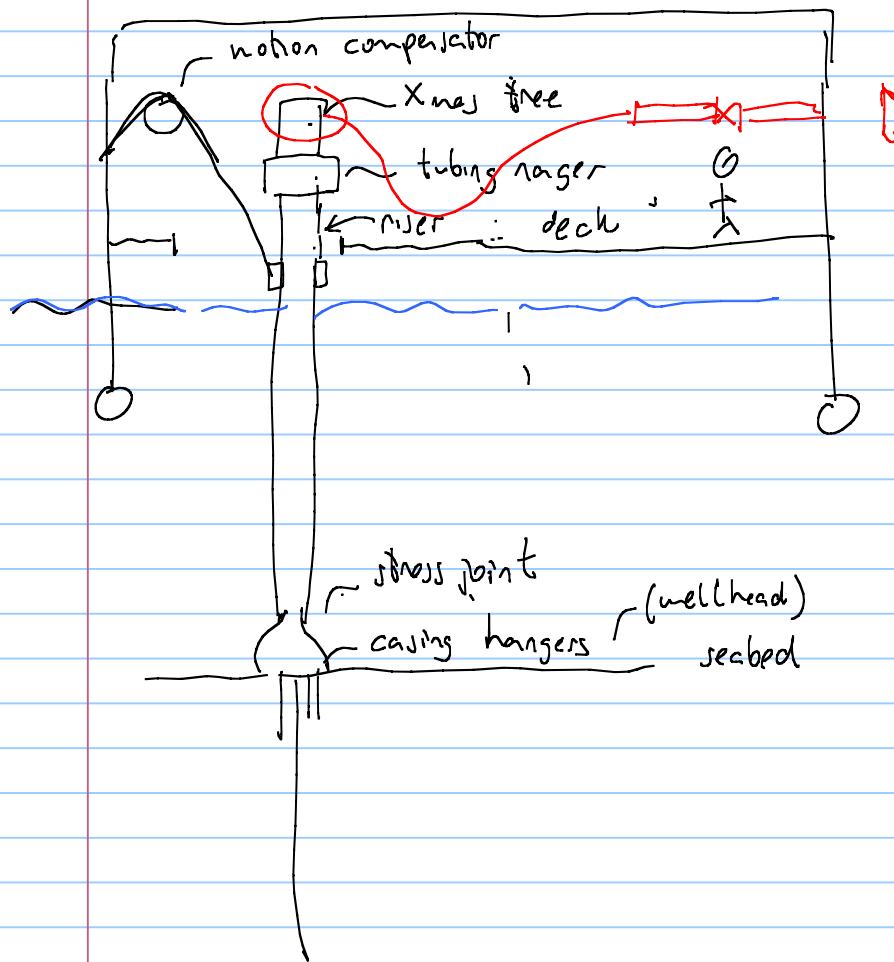 motion compensator
Xmas tree
tubing nager
riser
deck
stress joint
casing hangers
(wellhead)
seabed